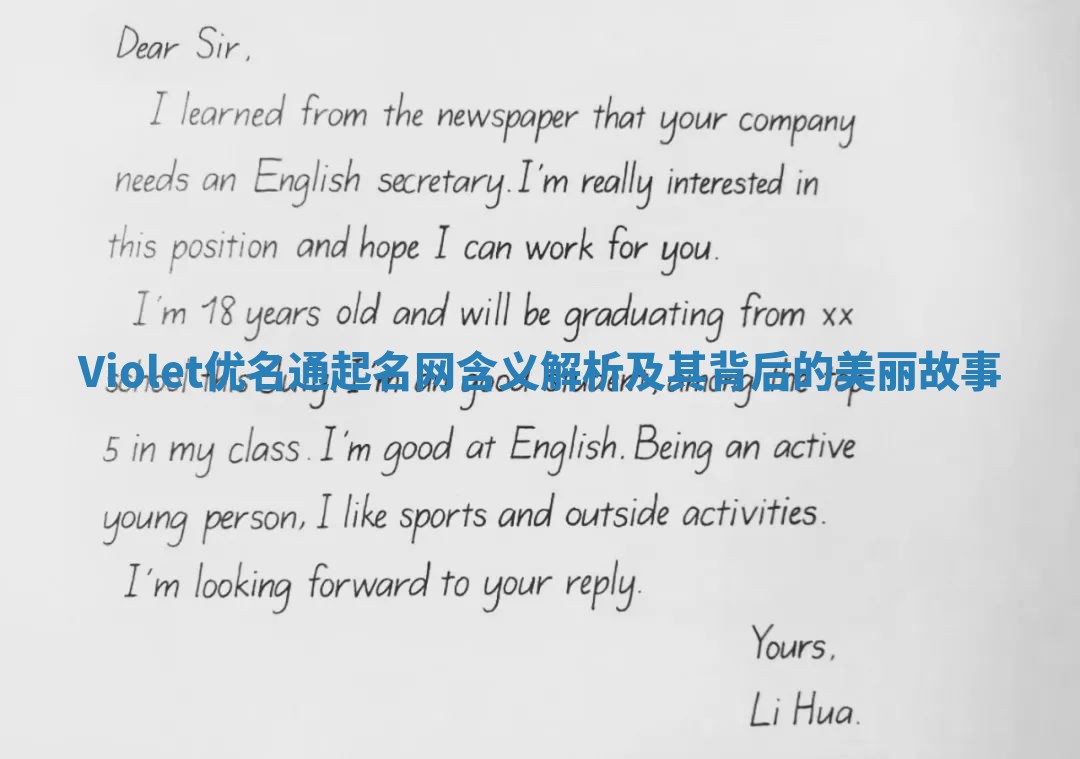 Dear Sir,
I learned from the newspaper that your company
needs an English secretary. I'm really interested in
this position and hope I can work for you.
I'm 18 years old and will be graduating from xx
Violet优名通起名网含义解析及其背后的美丽故事
school this July. I'm an good student, among the top
5 in my class. I'm good at English. Being an active
young person, I like sports and outside activities.
I'm looking forward to your reply.
Yours,
Li Hua.